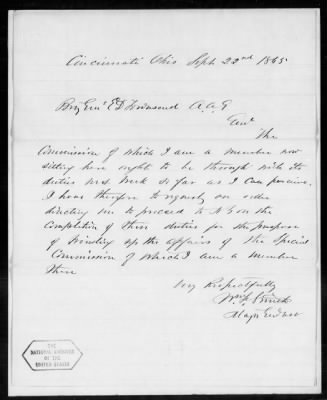 Cincinnati Ohio Sept 22nd 1865
Brig Genl E D Townsend A.A.G
Genl
The
Commission of which I am a member now
sitting here ought to be through with its
duties next Week so far as I can perceive.
I have therefore to request an order
directing me to proceed to N Y on the
Completion of these duties for the purpose
of winding up the affairs of the Special
Commission of which I am a member
there
Very Respectfully
Wm F Smith
Maj
THE
NATIONAL ARCHIVES
OF THE
UNITED STATES